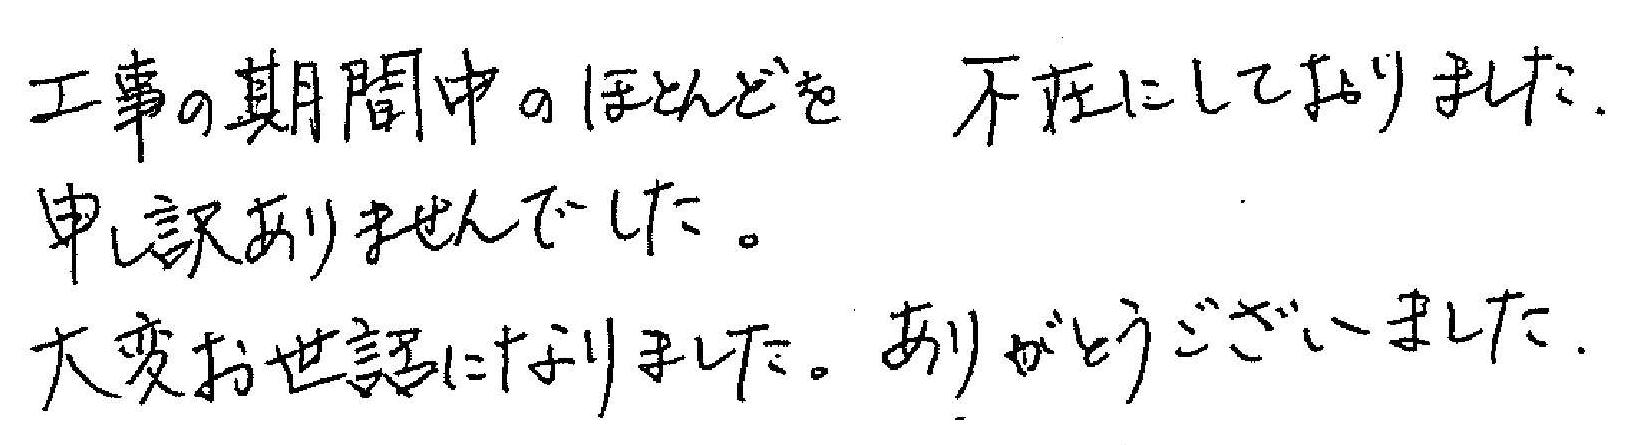 工事の期間中のほとんどを 不在にしておりました.
申し訳ありませんでした。
大変お世話になりました。ありがとうございました.